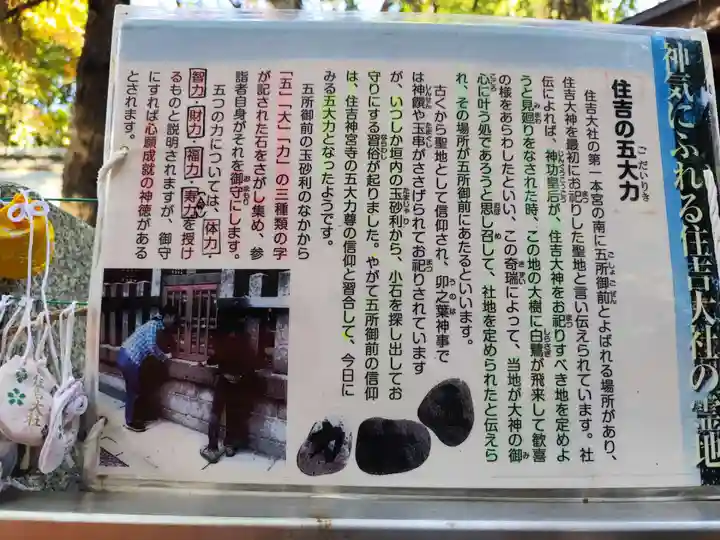 神気にふれる住吉大神の霊地
住吉の五大力
ごだいりき
住吉大社の第一本宮の南に五所御前とよばれる場所があり、
住吉大神を最初にお祀りした聖地と言い伝えられています。社
伝によれば、神功皇后が、住吉大神をお祀りすべき地を定めよ
うと見廻りをなされた時、この地の大樹に白鷺が飛来して歓喜
の様をあらわしたといい、この奇瑞によって、当地が大神の御
心に叶う処であろうと思し召して、社地を定められたと伝えら
れ、その場所が五所御前にあたるといいます。
古くから聖地として信仰され、卯之葉神事で
は神饌や玉串がささげられてお祀りされています
が、いつしか垣内の玉砂利から、小石を探し出してお
守りにする習俗が起りました。やがて五所御前の信仰
は、住吉神宮寺の五大力尊の信仰と習合して、今日に
みる五大力となったようです。
五所御前の玉砂利のなかから
「五」「大」「力」の三種類の字
が記された石をさがし集め、参
詣者自身がそれを御守にします。
五つの力については、体力・
智力・財力・福力・寿力を授け
るものと説明されますが、御守
にすれば心願成就の神徳がある
とされます。
住吉大社